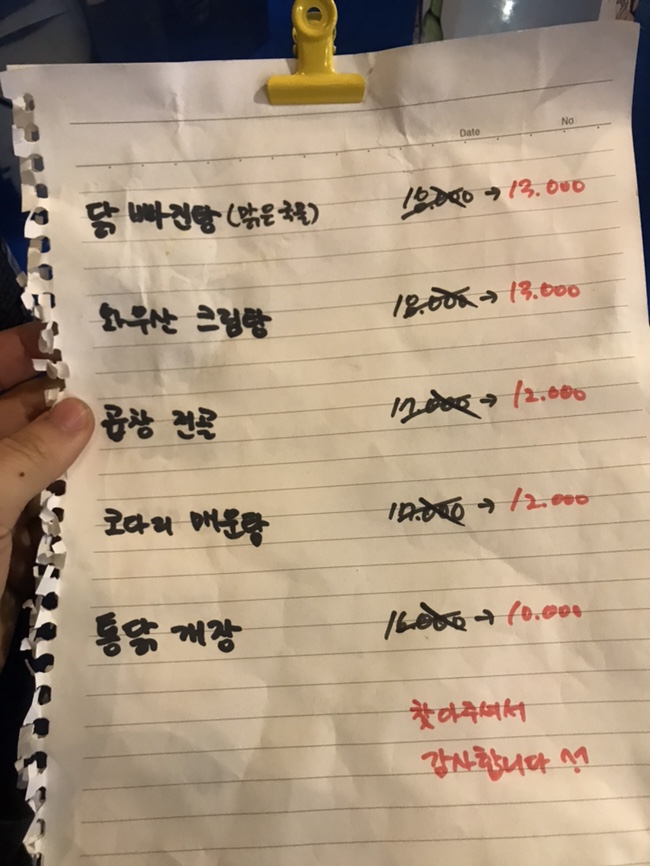 Date No
닭 빠간탕 (맑은국물) 18.000 → 13.000
와우산 크림탕 18.000 → 13.000
곱창 전골 17.000 → 12.000
코다리 매운탕 17.000 → 12.000
통닭 개장 16.000 → 10.000
찾아주셔서
감사합니다